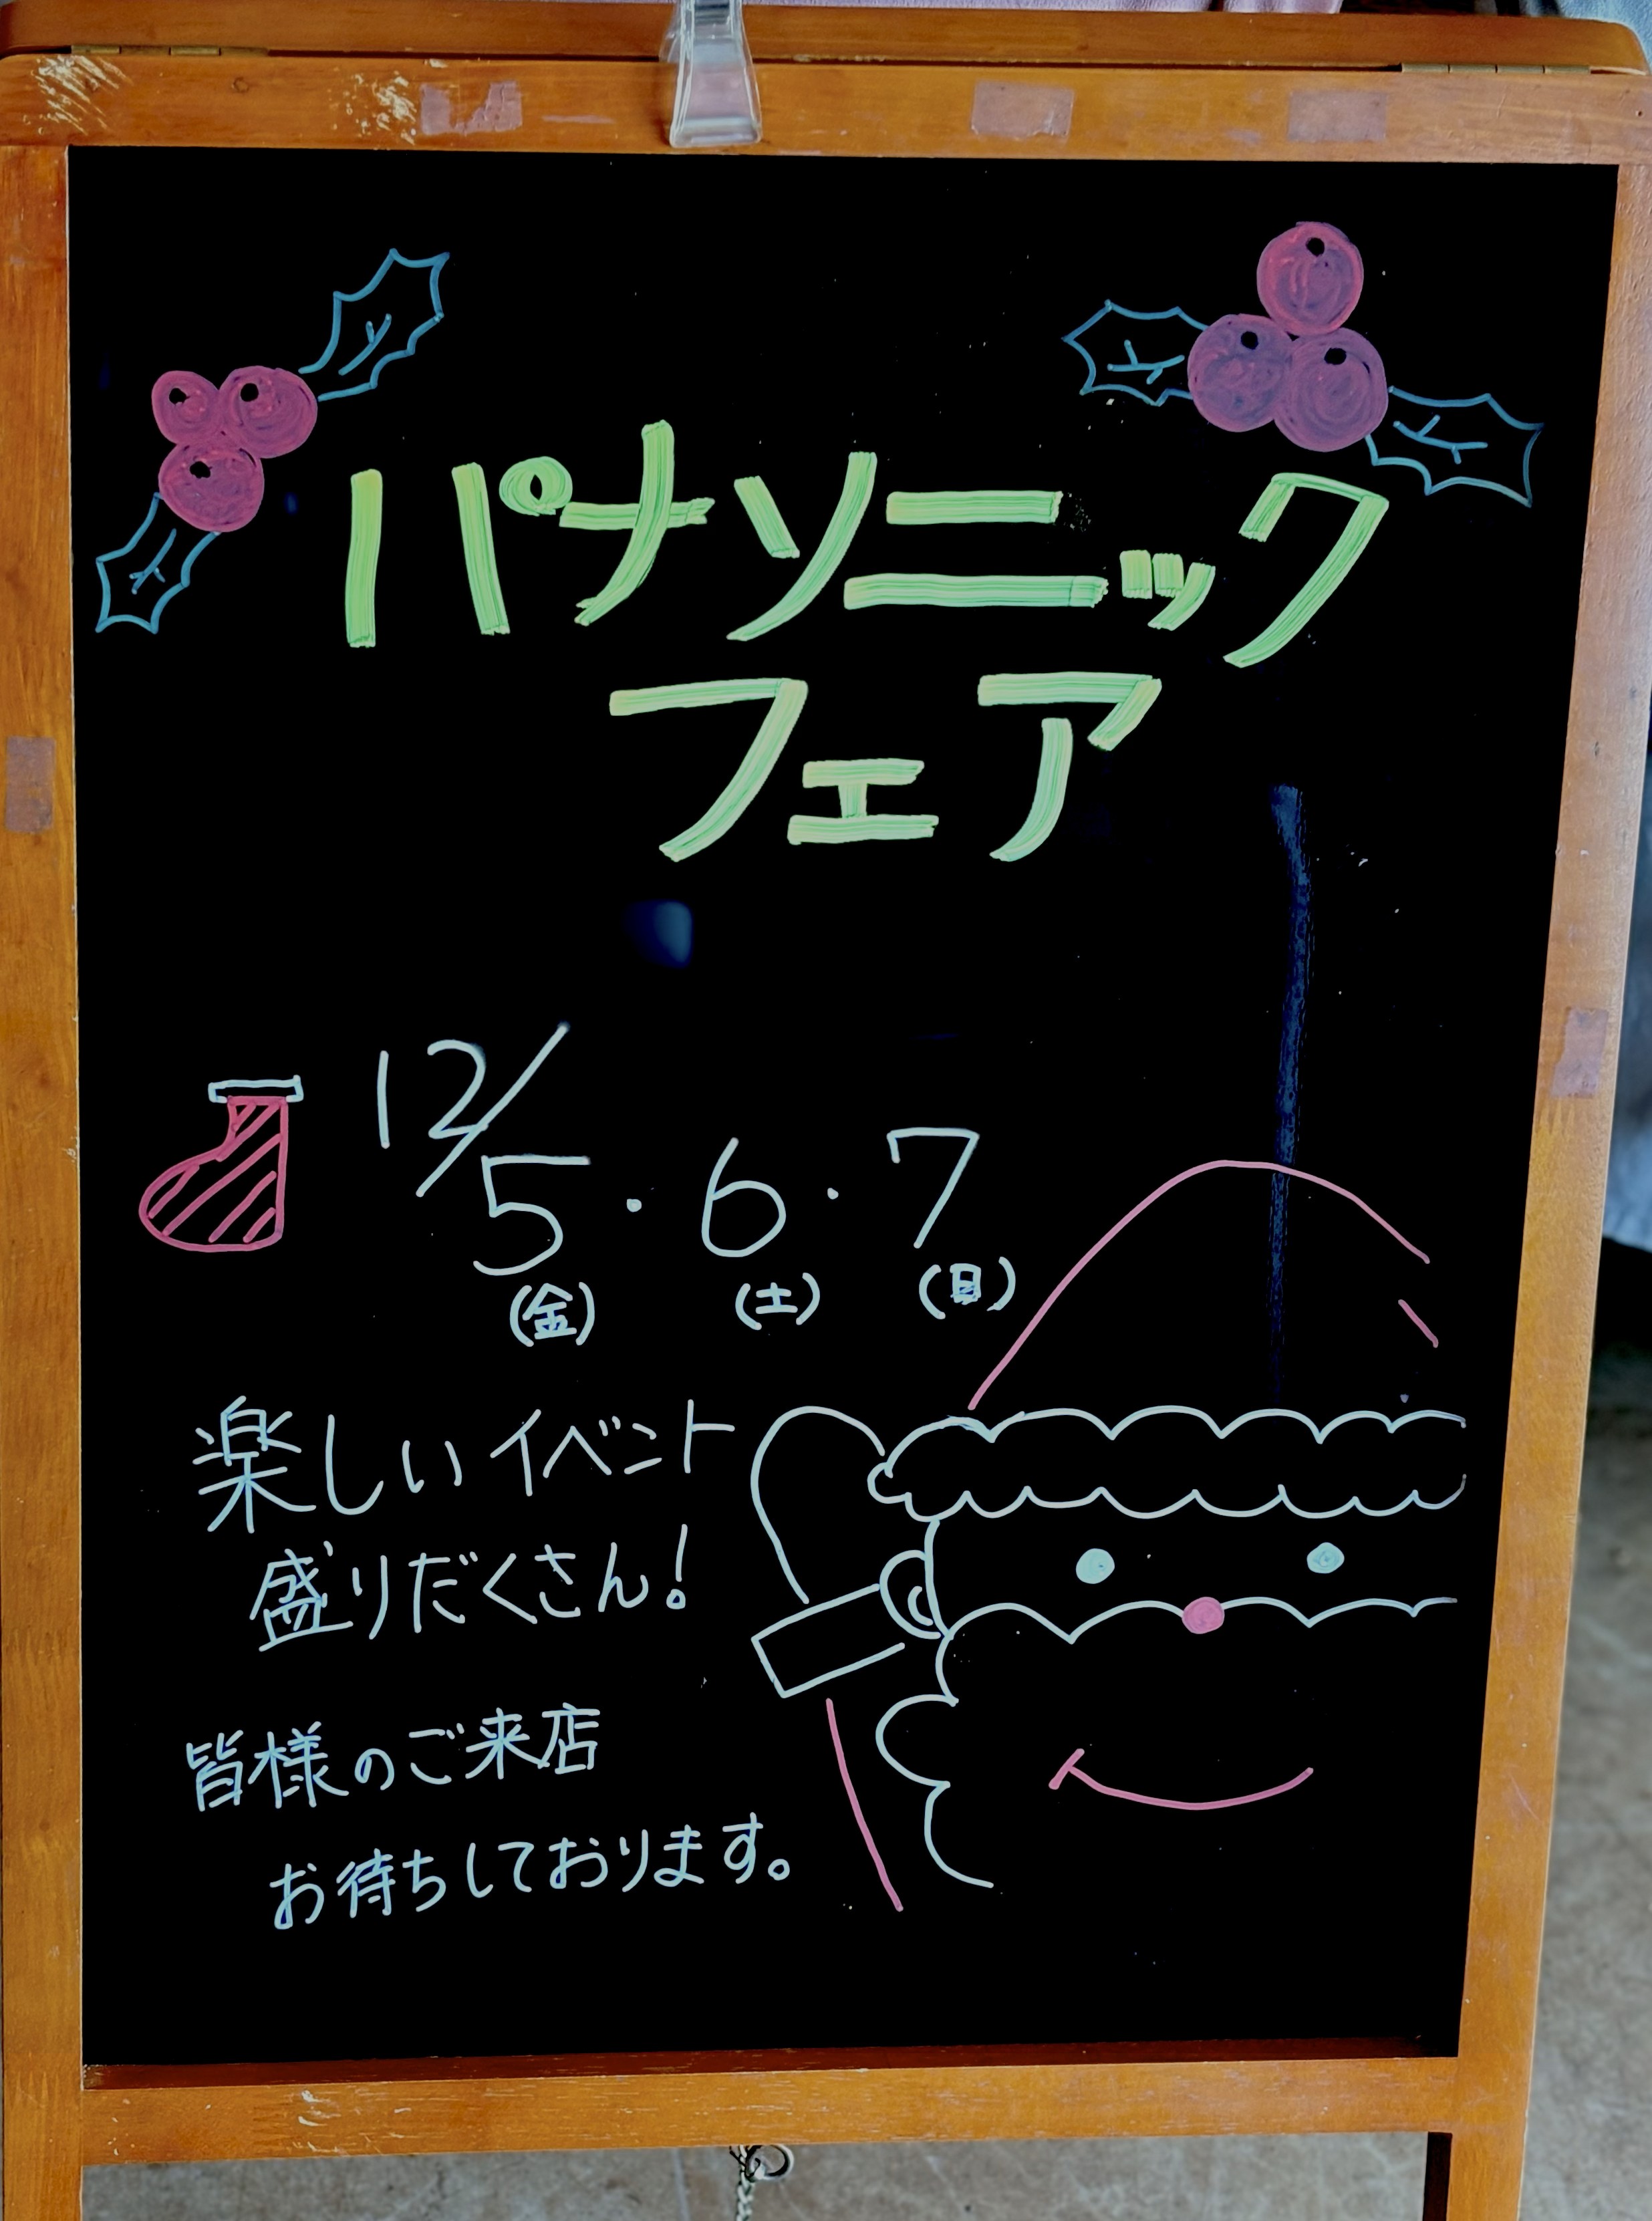 パナソニック
フェア
12/5・6・7
(金) (土) (日)
楽しいイベント
盛りだくさん!
皆様のご来店
お待ちしております。